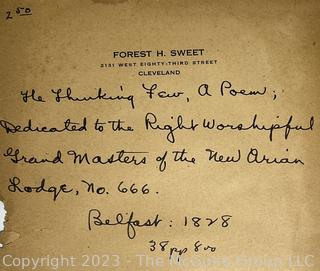 2.50
FOREST H. SWEET
2131 WEST EIGHTY-THIRD STREET
CLEVELAND
The Thinking Few, A Poem;
Dedicated to the Right Worshipful
Grand Masters of the New Arian
Lodge, No. 666.
Belfast: 1828
38 pp 8vo
Copyright 2023 - The McGuire Group LLC